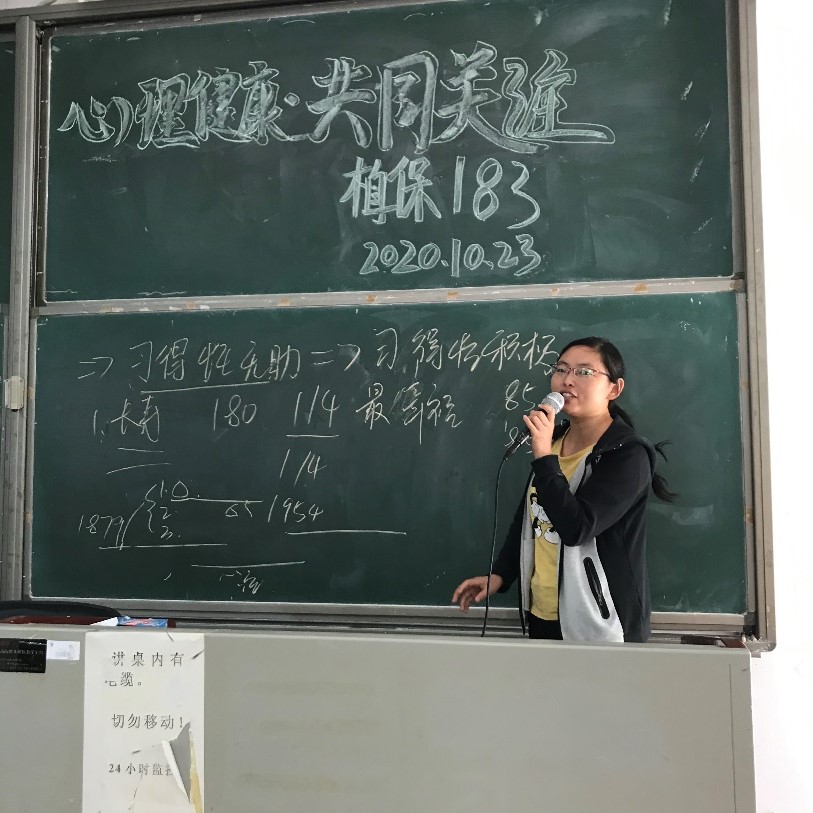 心理健康·共同关注
植保183
2020.10.23
=> 习得性无助 => 习得性积极
1. 长寿 180 1/4 最幸福 85
1/4
1.
2. 65 1954
3.
讲桌内有
电缆。
切勿移动!
24小时监控